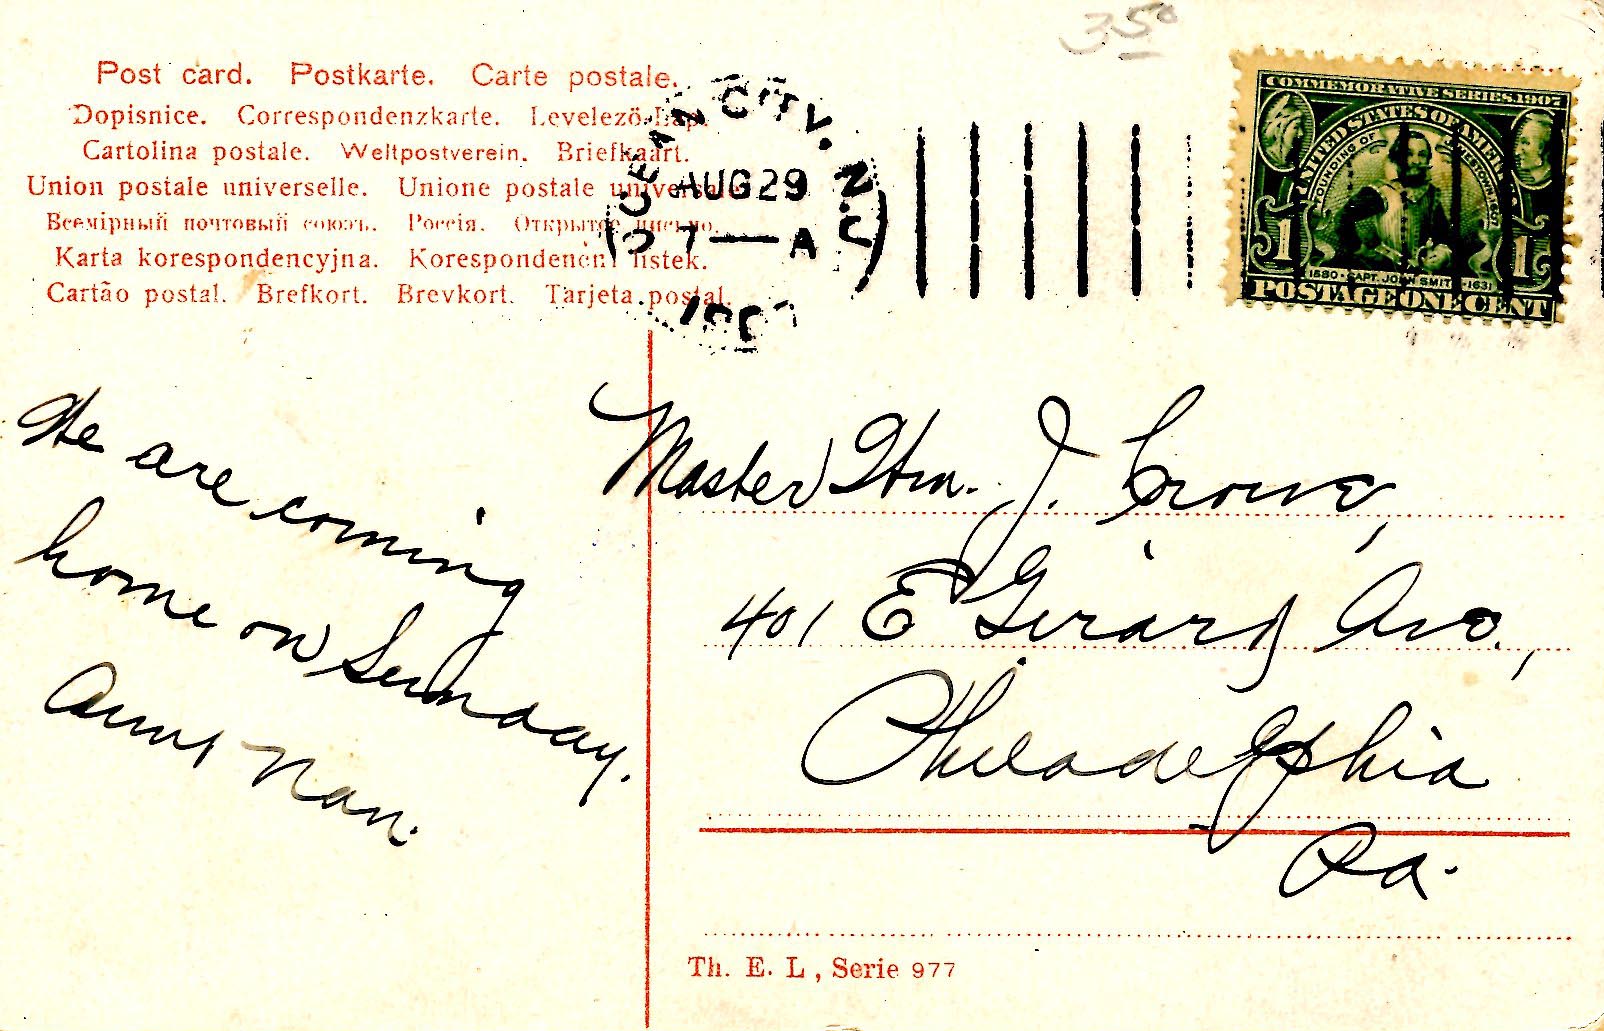 35⁰
Post card. Postkarte. Carte postale.
Dopisnice. Correspondenzkarte. Levelező-Lap.
Cartolina postale. Weltpostverein. Briefkaart.
Union postale universelle. Unione postale universale.
Всемірный почтовый союзъ. Россія. Открытое письмо.
Karta korespondencyjna. Korespondenční listek.
Cartão postal. Brefkort. Brevkort. Tarjeta postal.
OCEAN CITY, N.J.
AUG 29
7 — A
1907
COMMEMORATIVE SERIES 1907
UNITED STATES OF AMERICA
FOUNDING OF JAMESTOWN 1607
1 1
1580 · CAPT. JOHN SMITH · 1631
POSTAGE ONE CENT
We are coming
home on Sunday.
Aunt Nan.
Master Wm. J. Crowe,
401 E Girard Ave.,
Philadelphia
Pa.
Th. E. L., Serie 977